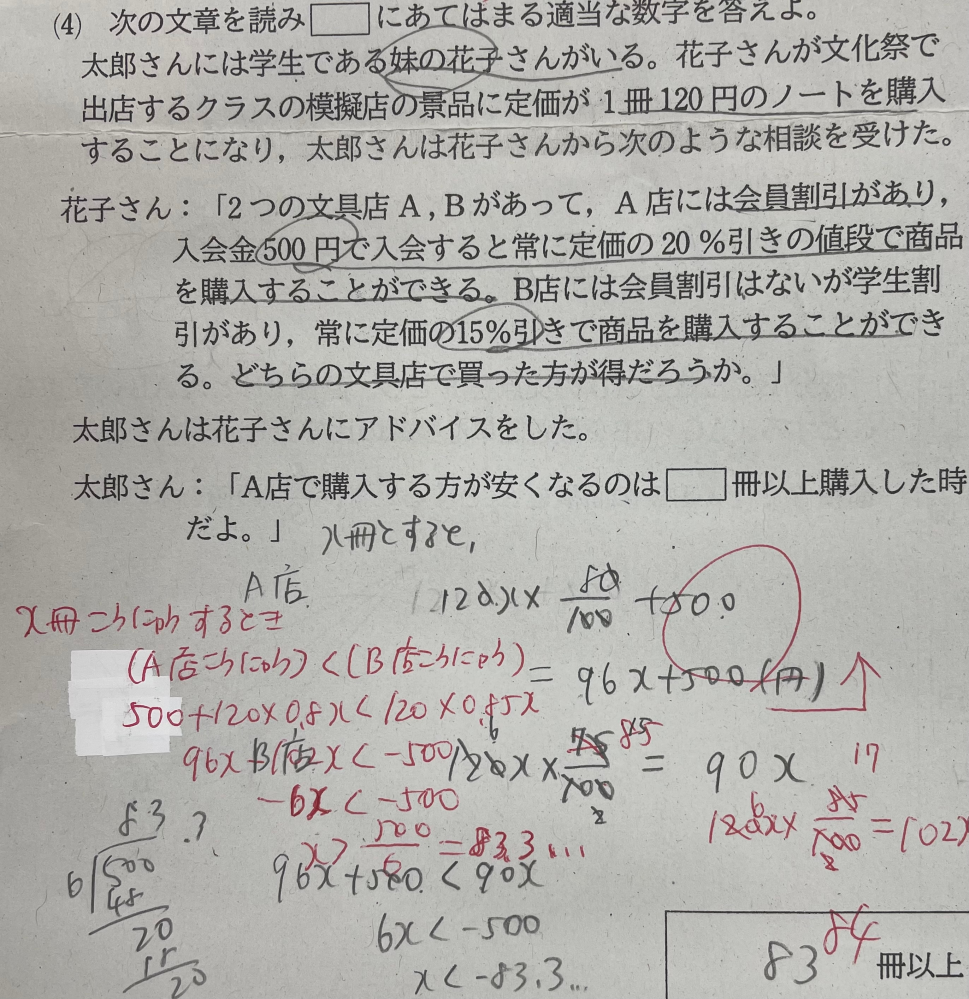 (4) 次の文章を読み□にあてはまる適当な数字を答えよ。
太郎さんには学生である妹の花子さんがいる。花子さんが文化祭で
出店するクラスの模擬店の景品に定価が1冊120円のノートを購入
することになり，太郎さんは花子さんから次のような相談を受けた。
花子さん：「2つの文具店A，Bがあって，A店には会員割引があり，
入会金500円で入会すると常に定価の20％引きの値段で商品
を購入することができる。B店には会員割引はないが学生割
引があり，常に定価の15％引きで商品を購入することができ
る。どちらの文具店で買った方が得だろうか。」
太郎さんは花子さんにアドバイスをした。
太郎さん：「A店で購入する方が安くなるのは□冊以上購入した時
だよ。」 x冊とすると，
A店 120x×80/100+500
x冊こうにゅうするとき
(A店こうにゅう)<(B店こうにゅう) =96x+500(円)
500+120×0.8x<120×0.85x
96x-102x<-500
B店 120x×75/100=90x
85 17
-6x<-500
120x×85/100=102x
x>500/6=83.3...
83.3
6)500
48
20
18
20
96x+500<90x
6x<-500
x<-83.3...
83 84 冊以上